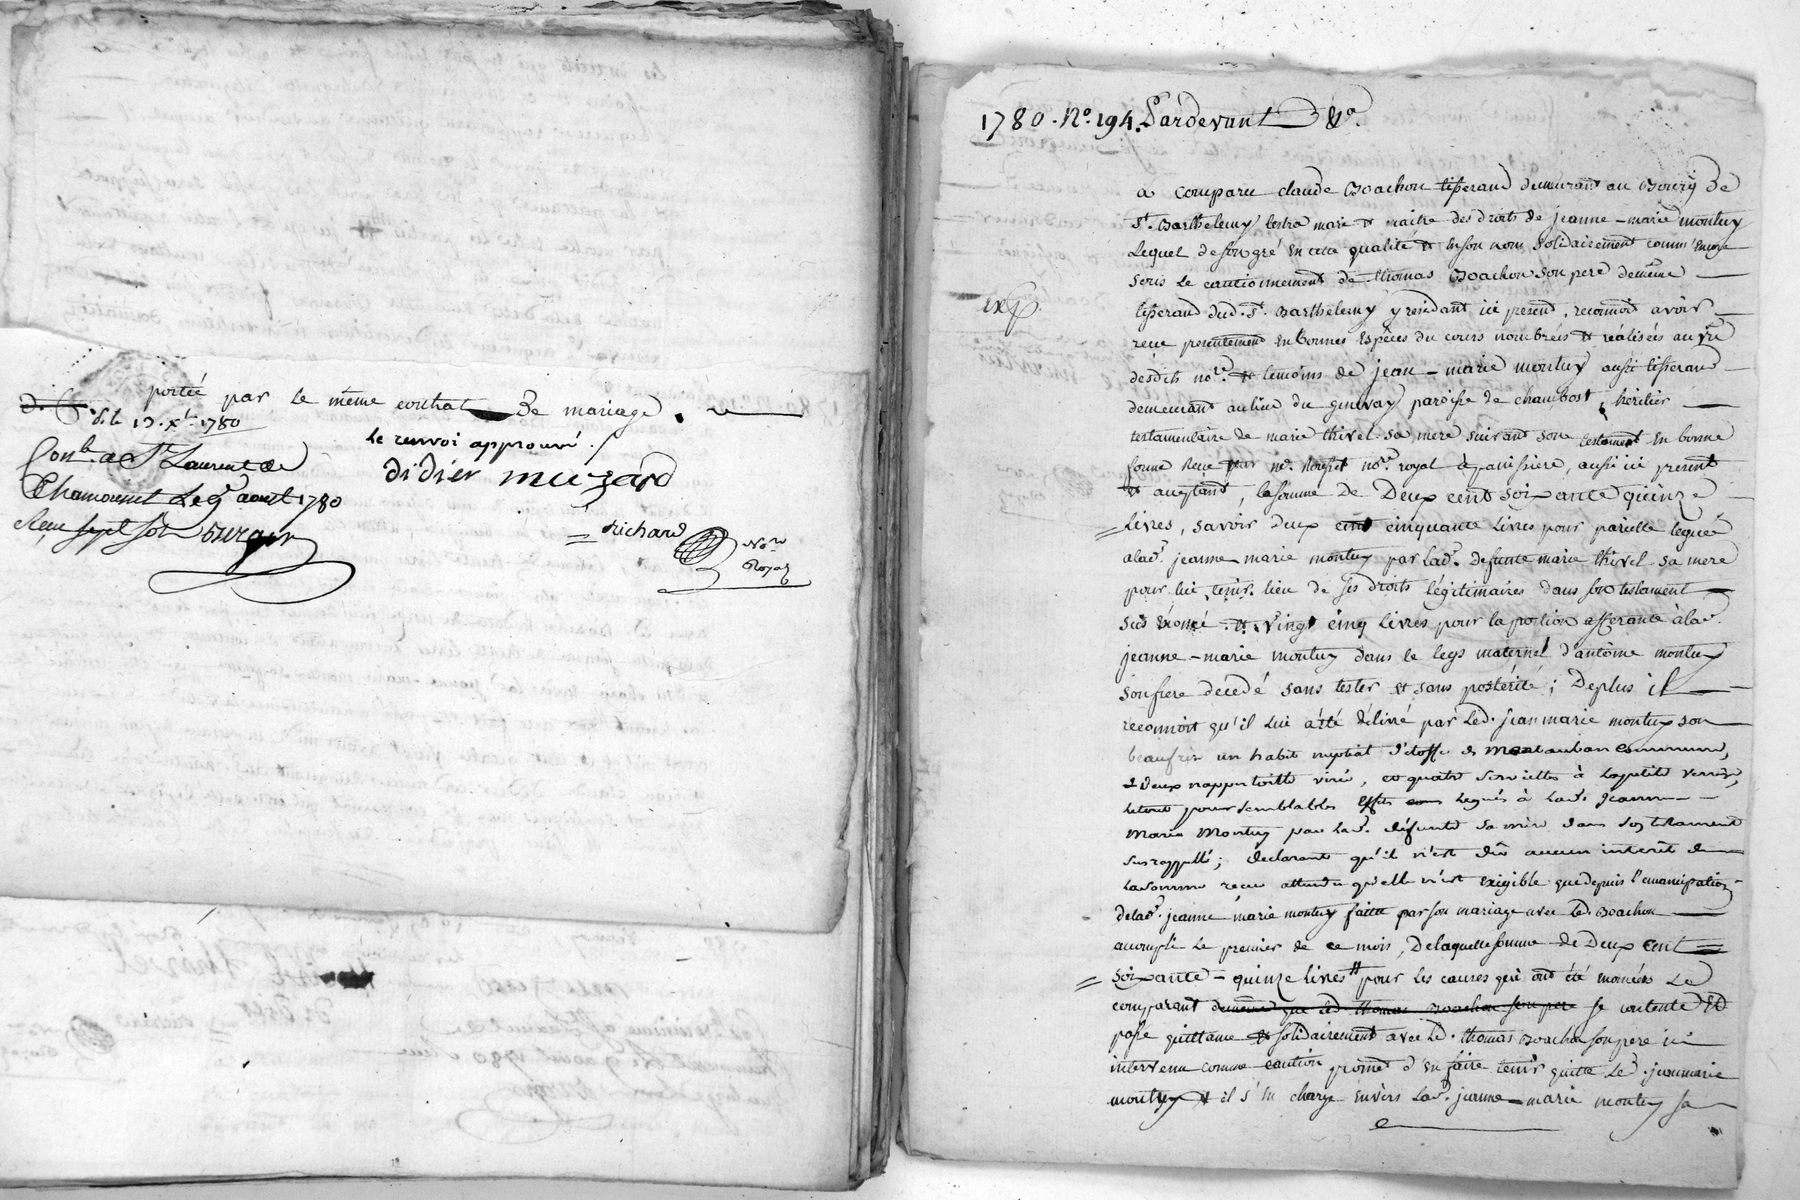 portée par le même contrat De mariage.
le renvoi approuvé.
didier muzard
Richard
No.re
Royal
d.te 1780
Con.lé a St Laurent de
Chamousset Le 9 aout 1780
Recu sept sols
1780. No. 194. Pardevant &a.
exp.
a comparu claude Boachon tisserand demeurant au Bourg de
St. Barthelemy lestra mari et maitre des droits de jeanne-marie montuy
Lequel de son gré en cette qualité et en son nom solidairement comm'encore
sous le cautionnement de thomas Boachon son pere deme
tisserand dud. St. Barthelemy y residant ici present, reconnoit avoir
recu presentement en bonnes Espèces du cours nombrées et réalisées au vu
desdits no.re et temoins de jean-marie montuy aussi tisserand
demeurant au lieu du genevay paroisse de chambost, héritier
testamentaire de marie thivel sa mere suivant son testament en bonne
forme Recu par me. no.re royal à panissiere, aussi ici present
et acceptant, la somme de Deux cent soixante quinze
Livres, savoir deux cent cinquante Livres pour pareille leguée
a lad. jeanne-marie montuy par lad. defunte marie thivel sa mere
pour lui tenir lieu de ses droits légitimaires dans son testament
sus énoncé et vingt cinq Livres pour la portion afferante à lad.
jeanne-marie montuy dans le legs maternel d'antoine montuy
son frere décédé sans tester et sans postérité; Deplus il
reconnoit qu'il lui a été délivré par led. jean marie montuy son
beaufrere un habit nuptial d'étoffe de Montauban commune,
et deux nappes toille, et quatre serviettes à la petite Venise,
le tout pour semblables Effets légués à lad. jeanne
Marie Montuy par lad. défunte sa mère dans son testament
sus rappellé; declarant qu'il n'est dû aucun interêt de
la somme recue attendu qu'elle n'est exigible que depuis l'emancipation
de lad. jeanne marie montuy faitte par son mariage avec led. Boachon
accompli Le premier de ce mois, De laquelle somme de Deux cent
soixante-quinze livres pour les causes qui ont été énoncées Le
comparant demême que led. thomas Boachon son pere se contente et
passe quittance et solidairement avec led. thomas Boachon son pere ici
intervenu comme caution promet d'en faire tenir quitte led. jean marie
montuy et il s'en charge envers lad. jeanne-marie montuy sa